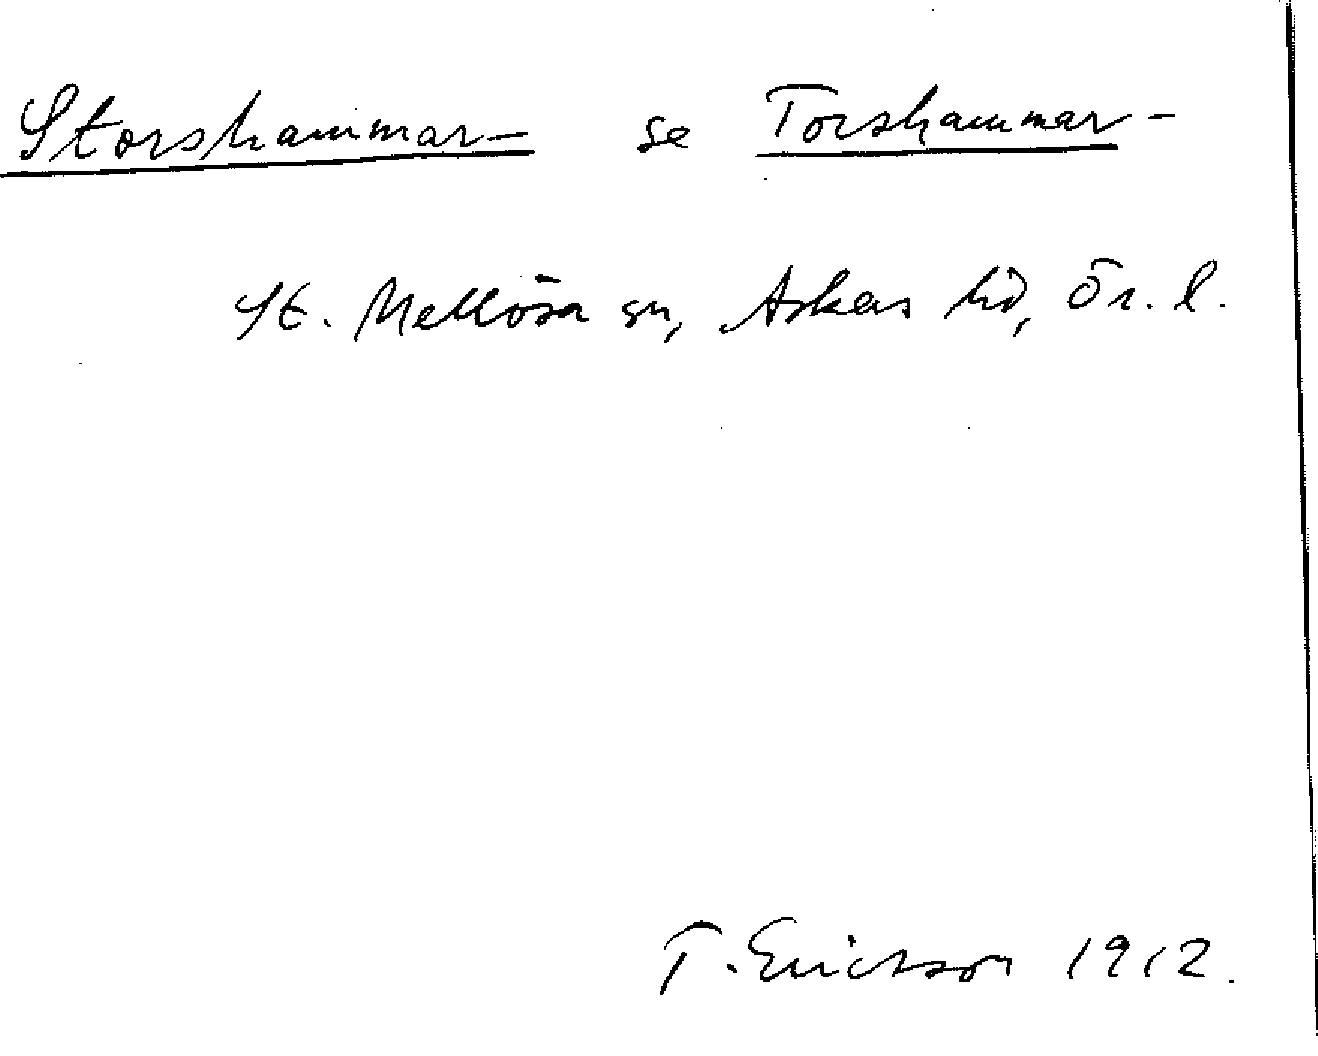 Storshammar- se Torshammar-
St. Mellösa sn, Askers hd, Ör. l.
T. Ericsson 1912.